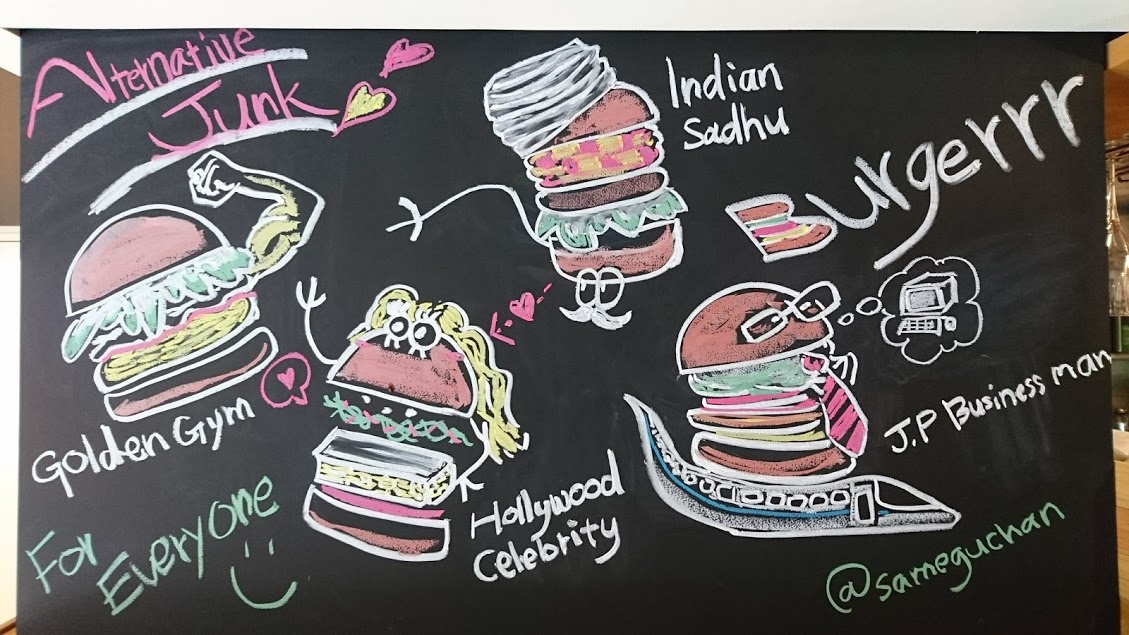 Alternative
Junk
Indian
Sadhu
Burgerrr
Golden Gym
Hollywood
Celebrity
J.P Business man
For
Everyone
@sameguchan